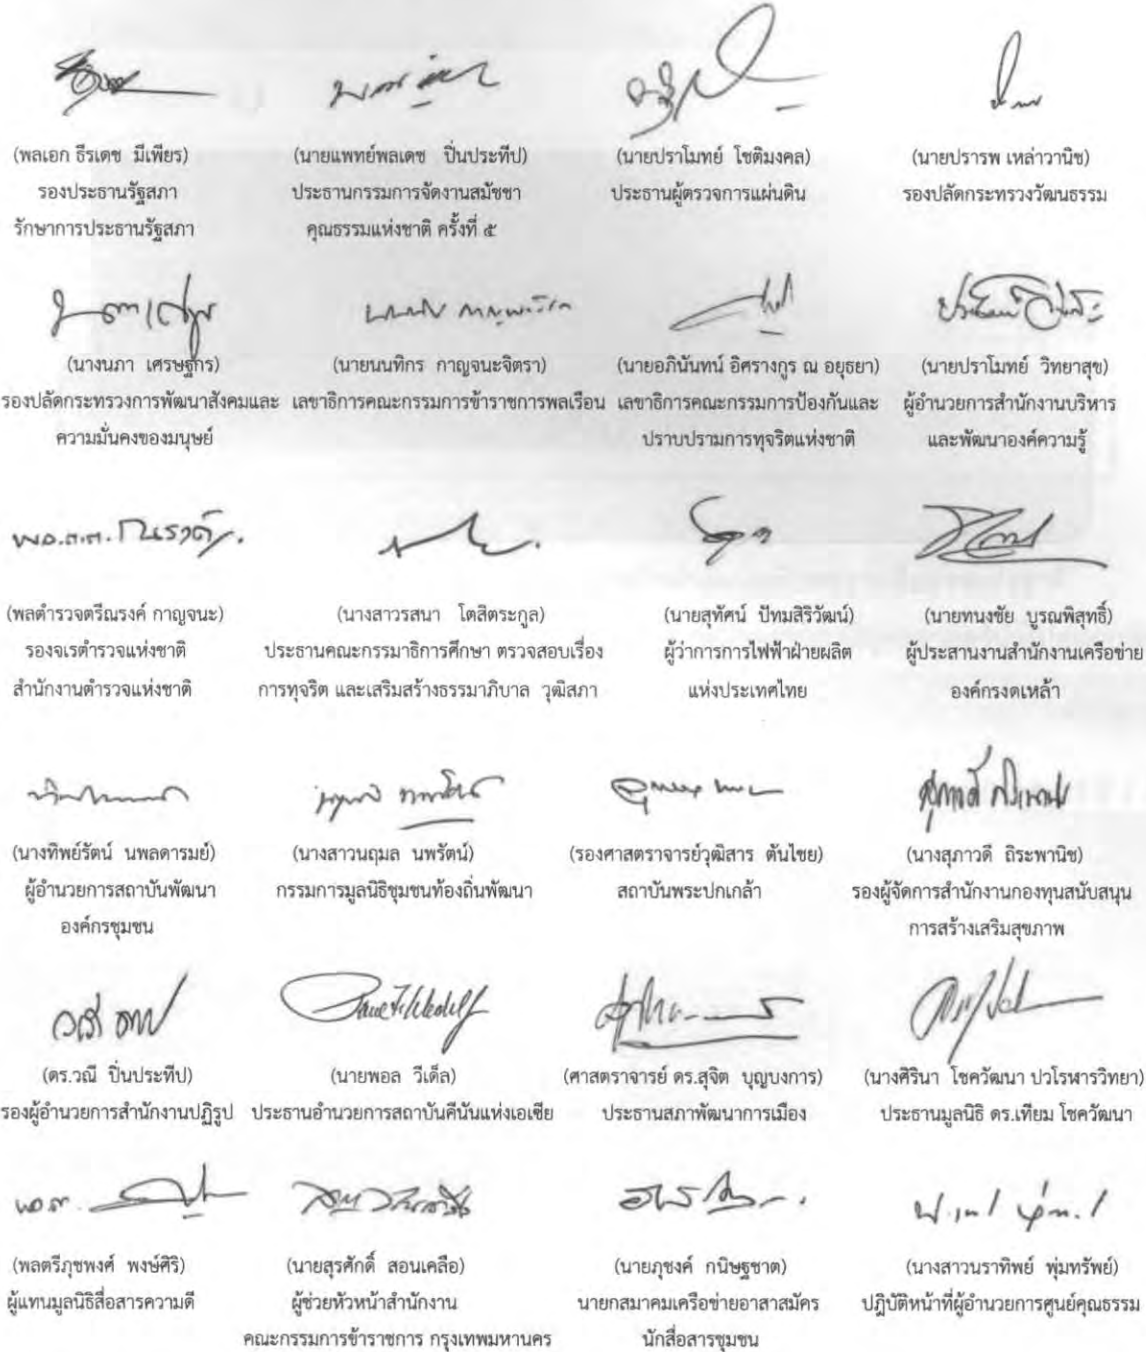 (พลเอก ธีรเดช มีเพียร)
รองประธานรัฐสภา
รักษาการประธานรัฐสภา
(นายแพทย์พลเดช ปิ่นประทีป)
ประธานกรรมการจัดงานสมัชชา
คุณธรรมแห่งชาติ ครั้งที่ ๕
(นายปราโมทย์ โชติมงคล)
ประธานผู้ตรวจการแผ่นดิน
(นายปรารพ เหล่าวานิช)
รองปลัดกระทรวงวัฒนธรรม
(นางนภา เศรษฐกร)
รองปลัดกระทรวงการพัฒนาสังคมและ
ความมั่นคงของมนุษย์
(นายนนทิกร กาญจนะจิตรา)
เลขาธิการคณะกรรมการข้าราชการพลเรือน
(นายอภินันทน์ อิศรางกูร ณ อยุธยา)
เลขาธิการคณะกรรมการป้องกันและ
ปราบปรามการทุจริตแห่งชาติ
(นายปราโมทย์ วิทยาสุข)
ผู้อำนวยการสำนักงานบริหาร
และพัฒนาองค์ความรู้
(พลตำรวจตรีณรงค์ กาญจนะ)
รองจเรตำรวจแห่งชาติ
สำนักงานตำรวจแห่งชาติ
(นางสาวรสนา โตสิตระกูล)
ประธานคณะกรรมาธิการศึกษา ตรวจสอบเรื่อง
การทุจริต และเสริมสร้างธรรมาภิบาล วุฒิสภา
(นายสุทัศน์ ปัทมสิริวัฒน์)
ผู้ว่าการการไฟฟ้าฝ่ายผลิต
แห่งประเทศไทย
(นายทนงชัย บูรณพิสุทธิ์)
ผู้ประสานงานสำนักงานเครือข่าย
องค์กรงดเหล้า
(นางทิพย์รัตน์ นพลดารมย์)
ผู้อำนวยการสถาบันพัฒนา
องค์กรชุมชน
(นางสาวนฤมล นพรัตน์)
กรรมการมูลนิธิชุมชนท้องถิ่นพัฒนา
(รองศาสตราจารย์วุฒิสาร ตันไชย)
สถาบันพระปกเกล้า
(นางสุภาวดี ถิระพานิช)
รองผู้จัดการสำนักงานกองทุนสนับสนุน
การสร้างเสริมสุขภาพ
(ดร.วณี ปิ่นประทีป)
รองผู้อำนวยการสำนักงานปฏิรูป
(นายพอล วีเด็ล)
ประธานอำนวยการสถาบันคีนันแห่งเอเซีย
(ศาสตราจารย์ ดร.สุจิต บุญบงการ)
ประธานสภาพัฒนาการเมือง
(นางศิรินา โชควัฒนา ปวโรฬารวิทยา)
ประธานมูลนิธิ ดร.เทียม โชควัฒนา
(พลตรีภุชพงศ์ พงษ์ศิริ)
ผู้แทนมูลนิธิสื่อสารความดี
(นายสุรศักดิ์ สอนเคลือ)
ผู้ช่วยหัวหน้าสำนักงาน
คณะกรรมการข้าราชการ กรุงเทพมหานคร
(นายภุชงค์ กนิษฐชาต)
นายกสมาคมเครือข่ายอาสาสมัคร
นักสื่อสารชุมชน
(นางสาวนราทิพย์ พุ่มทรัพย์)
ปฏิบัติหน้าที่ผู้อำนวยการศูนย์คุณธรรม